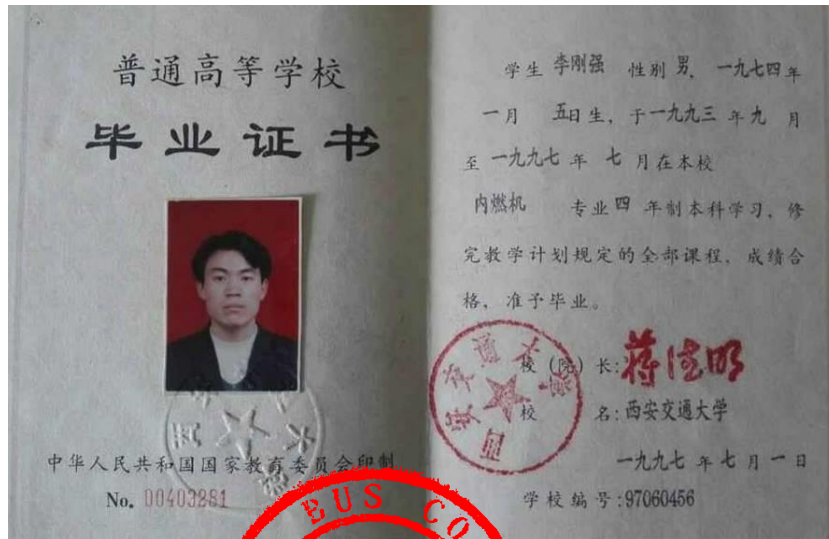 普通高等学校
毕业证书
中华人民共和国国家教育委员会印制
No. 00403281
学生 李刚强 性别 男, 一九七四年
一月 五日生, 于一九九三年九月
至一九九七年七月在本校
内燃机 专业四年制本科学习, 修
完教学计划规定的全部课程, 成绩合
格, 准予毕业。
校(院)长: 蒋德明
校 名: 西安交通大学
一九九七年七月一日
学校编号: 97060456
西安交通大学
EUS CO